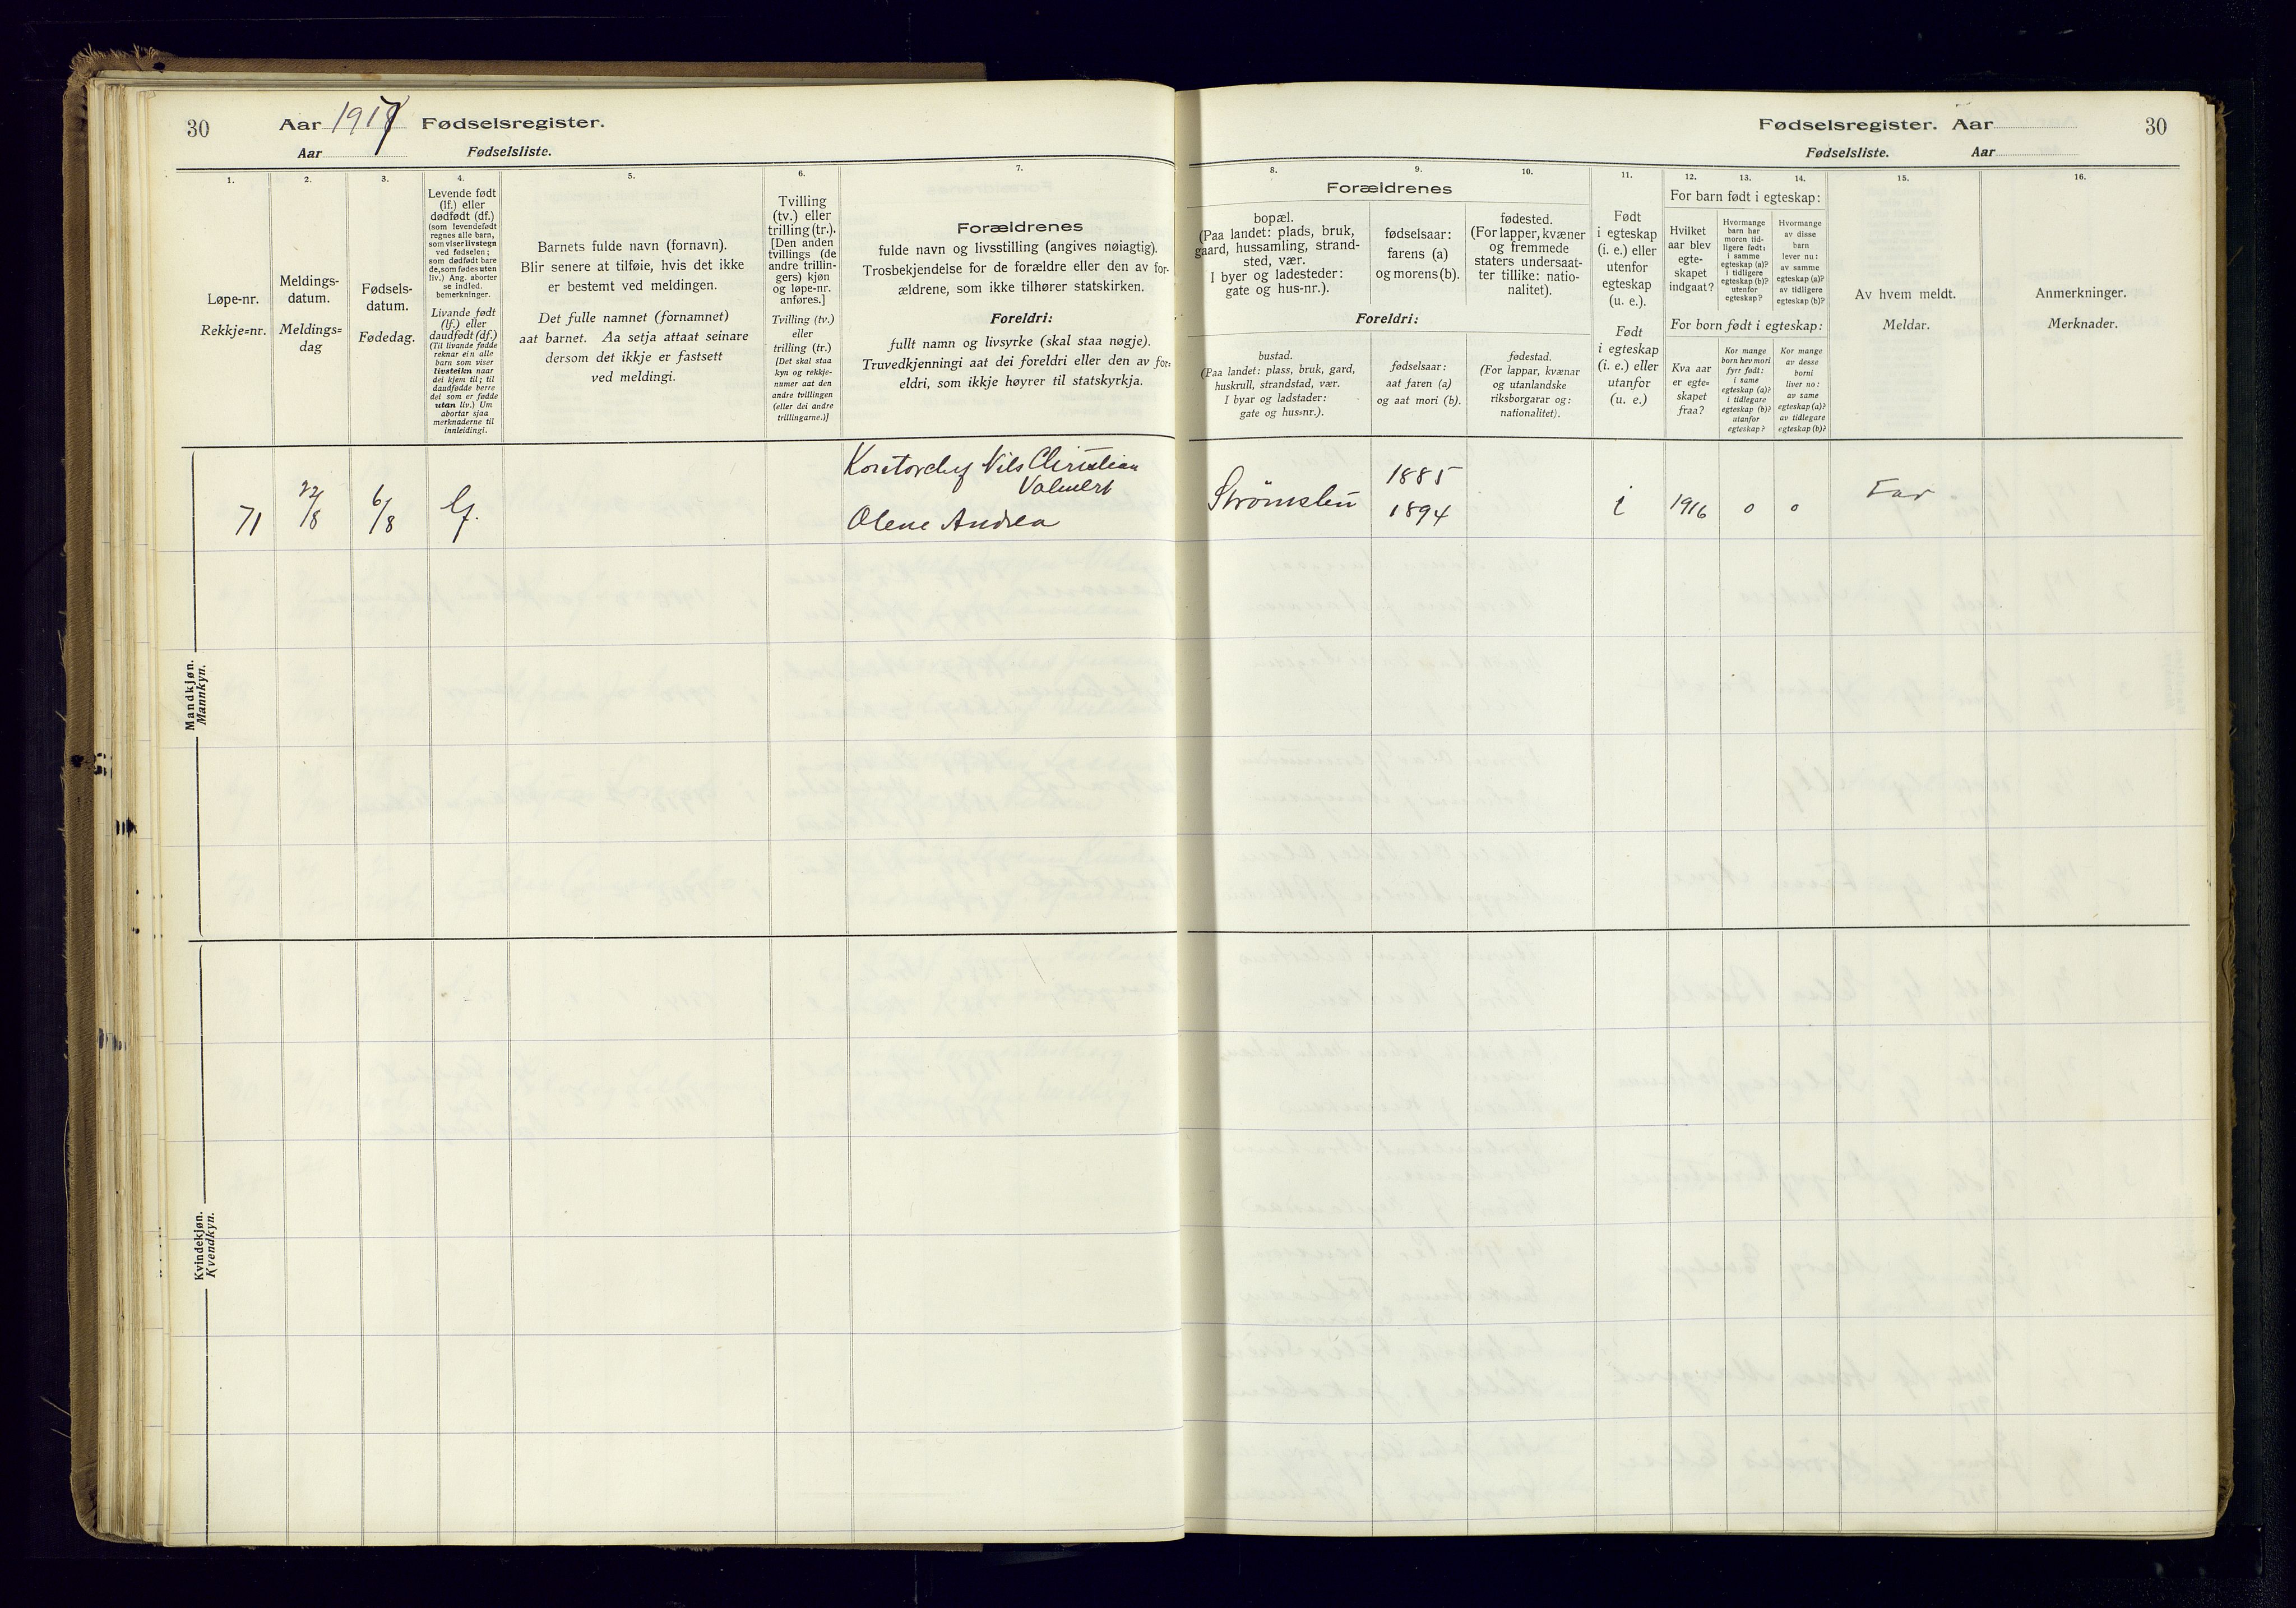 30
Aar 1917 Fødselsregister.
Aar Fødselsliste.
1.
Løpe-nr.
Rekkje=nr.
2.
Meldings-
datum.
Meldings=
dag
3.
Fødsels-
datum.
Fødedag.
4.
Levende født
(lf.) eller
dødfødt (df.)
(som levendefødt
regnes alle barn,
som viser livstegn
ved fødselen;
som dødfødt bare
de, som fødes uten
liv.) Ang. aborter
se indled.
bemerkninger.
Livande født
(lf.) eller
daudfødt (df.)
(Til livande fødde
reknar ein alle
barn som viser
livsteikn naar
dei kjem til; til
daudfødde berre
dei som er fødde
utan liv.) Um
abortar sjaa
merknaderne til
innleidingi.
5.
Barnets fulde navn (fornavn).
Blir senere at tilføie, hvis det ikke
er bestemt ved meldingen.
Det fulle namnet (fornamnet)
aat barnet. Aa setja attaat seinare
dersom det ikkje er fastsett
ved meldingi.
6.
Tvilling
(tv.) eller
trilling (tr.).
[Den anden
tvillings (de
andre trillin-
gers) kjøn
og løpe-nr.
anføres.]
Tvilling (tv.)
eller
trilling (tr.)
[Det skal staa
kyn og rekkje-
numer aat den
andre tvillingen
(eller dei andre
trillingarne.)]
7.
Forældrenes
fulde navn og livsstilling (angives nøiagtig).
Trosbekjendelse for de forældre eller den av for-
ældrene, som ikke tilhører statskirken.
Foreldri:
fullt namn og livsyrke (skal staa nøgje).
Truvedkjenningi aat dei foreldri eller den av for=
eldri, som ikkje høyrer til statskyrkja.
Mandkjøn.
Mannkyn.
71
22/8
6/8
lf.
Nils Christian
Olene Andrea
Kvindekjøn.
Kvendkyn.
Fødselsregister. Aar
30
Fødselsliste. Aar
8.
Forældrenes
bopæl.
(Paa landet: plads, bruk,
gaard, hussamling, strand-
sted, vær.
I byer og ladesteder:
gate og hus-nr.).
9.
fødselsaar:
farens (a)
og morens (b).
10.
fødested.
(For lapper, kvæner
og fremmede
staters undersaat-
ter tillike: natio-
nalitet).
Foreldri:
bustad.
(Paa landet: plass, bruk, gard,
huskrull, strandstad, vær.
I byar og ladstader:
gate og hus=nr.).
fødselsaar:
aat faren (a)
og aat mori (b).
fødestad.
(For lappar, kvænar
og utanlandske
riksborgarar og:
nationalitet).
11.
Født
i egteskap
(i. e.) eller
utenfor
egteskap
(u. e.).
Født
i egteskap
(i. e.) eller
utanfor
(u. e.)
12.
13.
14.
For barn født i egteskap:
Hvilket
aar blev
egte-
skapet
indgaat?
Hvormange
barn har
moren tid-
ligere født:
i samme
egteskap (a)?
i tidligere
egteskap (b)?
utenfor
egteskap?
Hvormange
av disse
barn
lever nu:
av samme
egteskap (a)?
av tidligere
egteskap (b)?
For born født i egteskap:
Kva aar
er egte=
skapet
fraa?
Kor mange
born hev mori
fyrr født:
i same
egteskap (a)?
i tidlegare
egteskap (b)?
utanfor
egteskap?
Kor mange
av desse
borni
liver no:
av same
egteskap (a)?
av tidlegare
egteskap (b)?
15.
Av hvem meldt.
Meldar.
16.
Anmerkninger.
Merknader.
1885
1894
i
1916
0
0
Far